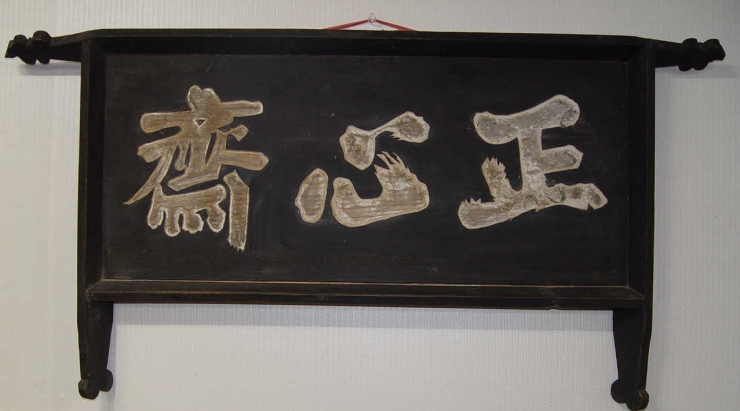 正心齋